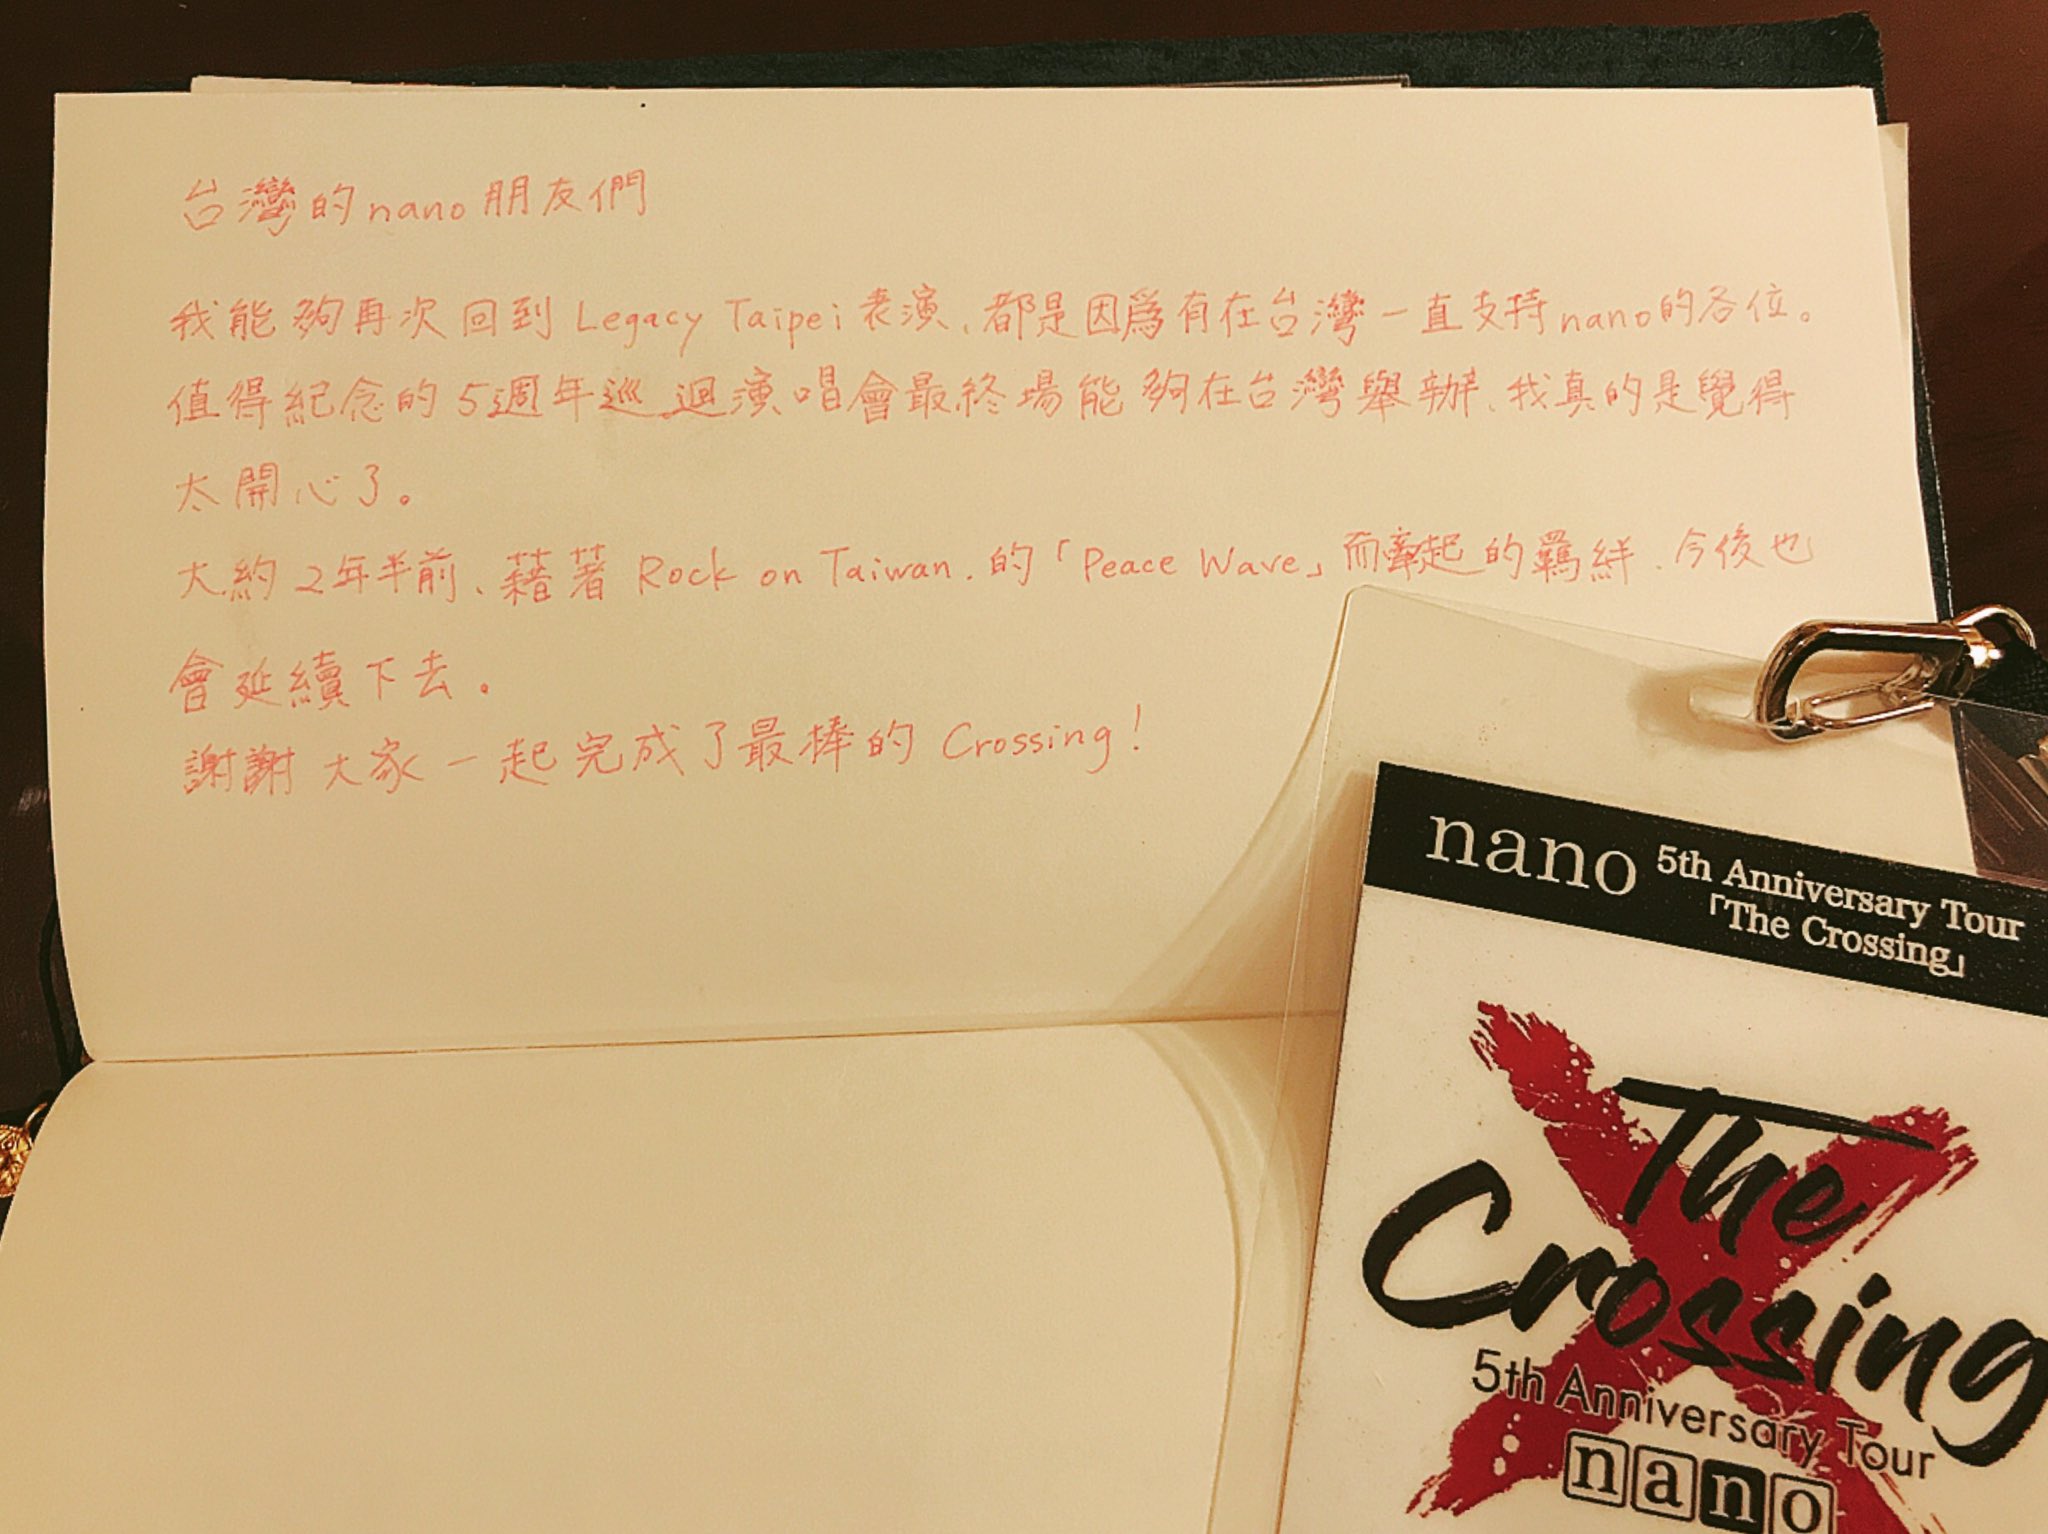 台灣的nano朋友們
我能夠再次回到 Legacy Taipei 表演、都是因爲有在台灣一直支持nano的各位。
值得紀念的5週年巡迴演唱會最終場能夠在台灣舉辦、我真的是覺得
太開心了。
大約2年半前、藉著 Rock on Taiwan.的「Peace Wave」而牽起的羈絆、今後也
會延續下去。
謝謝大家一起完成了最棒的 Crossing!
nano 5th Anniversary Tour
「The Crossing」
The
Crossing
5th Anniversary Tour
nano